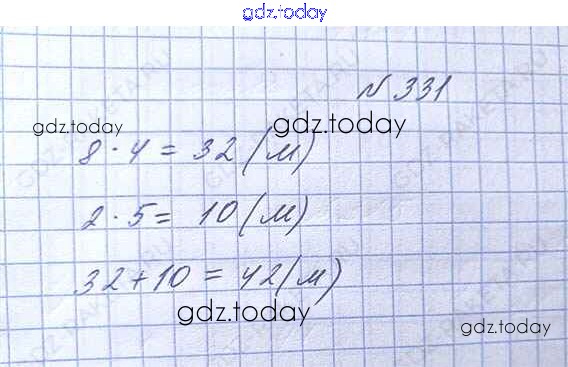 gdz.today
№ 331
gdz.today gdz.today
8 · 4 = 32 (м)
2 · 5 = 10 (м)
32 + 10 = 42 (м)
gdz.today
gdz.today